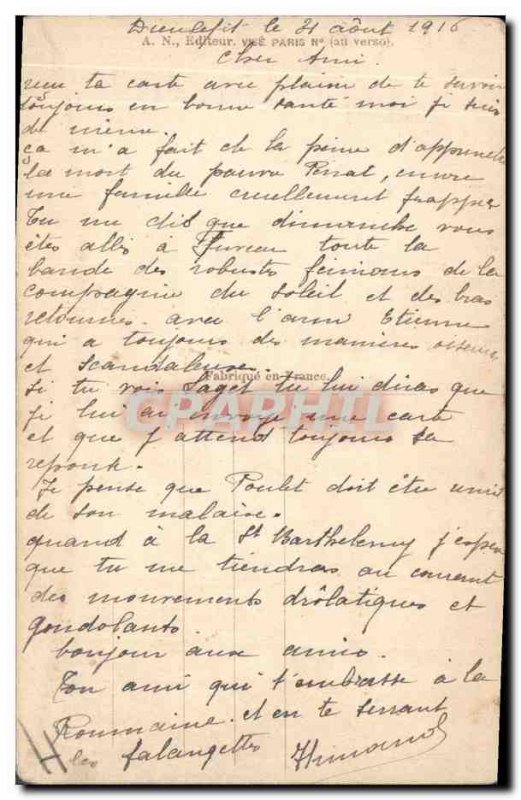 Dieulefit le 21 août 1916
A. N., Editeur. VISÉ PARIS Nº (au verso).
Cher Ami.
reçu ta carte avec plaisir de te savoir
toujours en bonne santé moi je suis
de même.
ça m'a fait de la peine d'apprendre
la mort du pauvre Perrat, encore
une famille cruellement frappée
Tu me dis que dimanche vous
êtes allés à toute la
bande des robustes de la
compagnie du Soleil et des bras
retournés avec l'ami Etienne
qui a toujours des manières
et scandaleuse.
Fabriqué en France.
Si tu vois Saget tu lui diras que
je lui ai envoyé une carte
CPAPHIL
et que j'attend toujours sa
réponse.
Je pense que Poulet doit être
de son malaise.
quand à la St Barthelemy j'espère
que tu me tiendras au courant
des mouvements drôlatiques et
gondolants
bonjour aux amis.
Ton ami qui t'embrasse à la
Roumaine et en te serrant
les falangettes